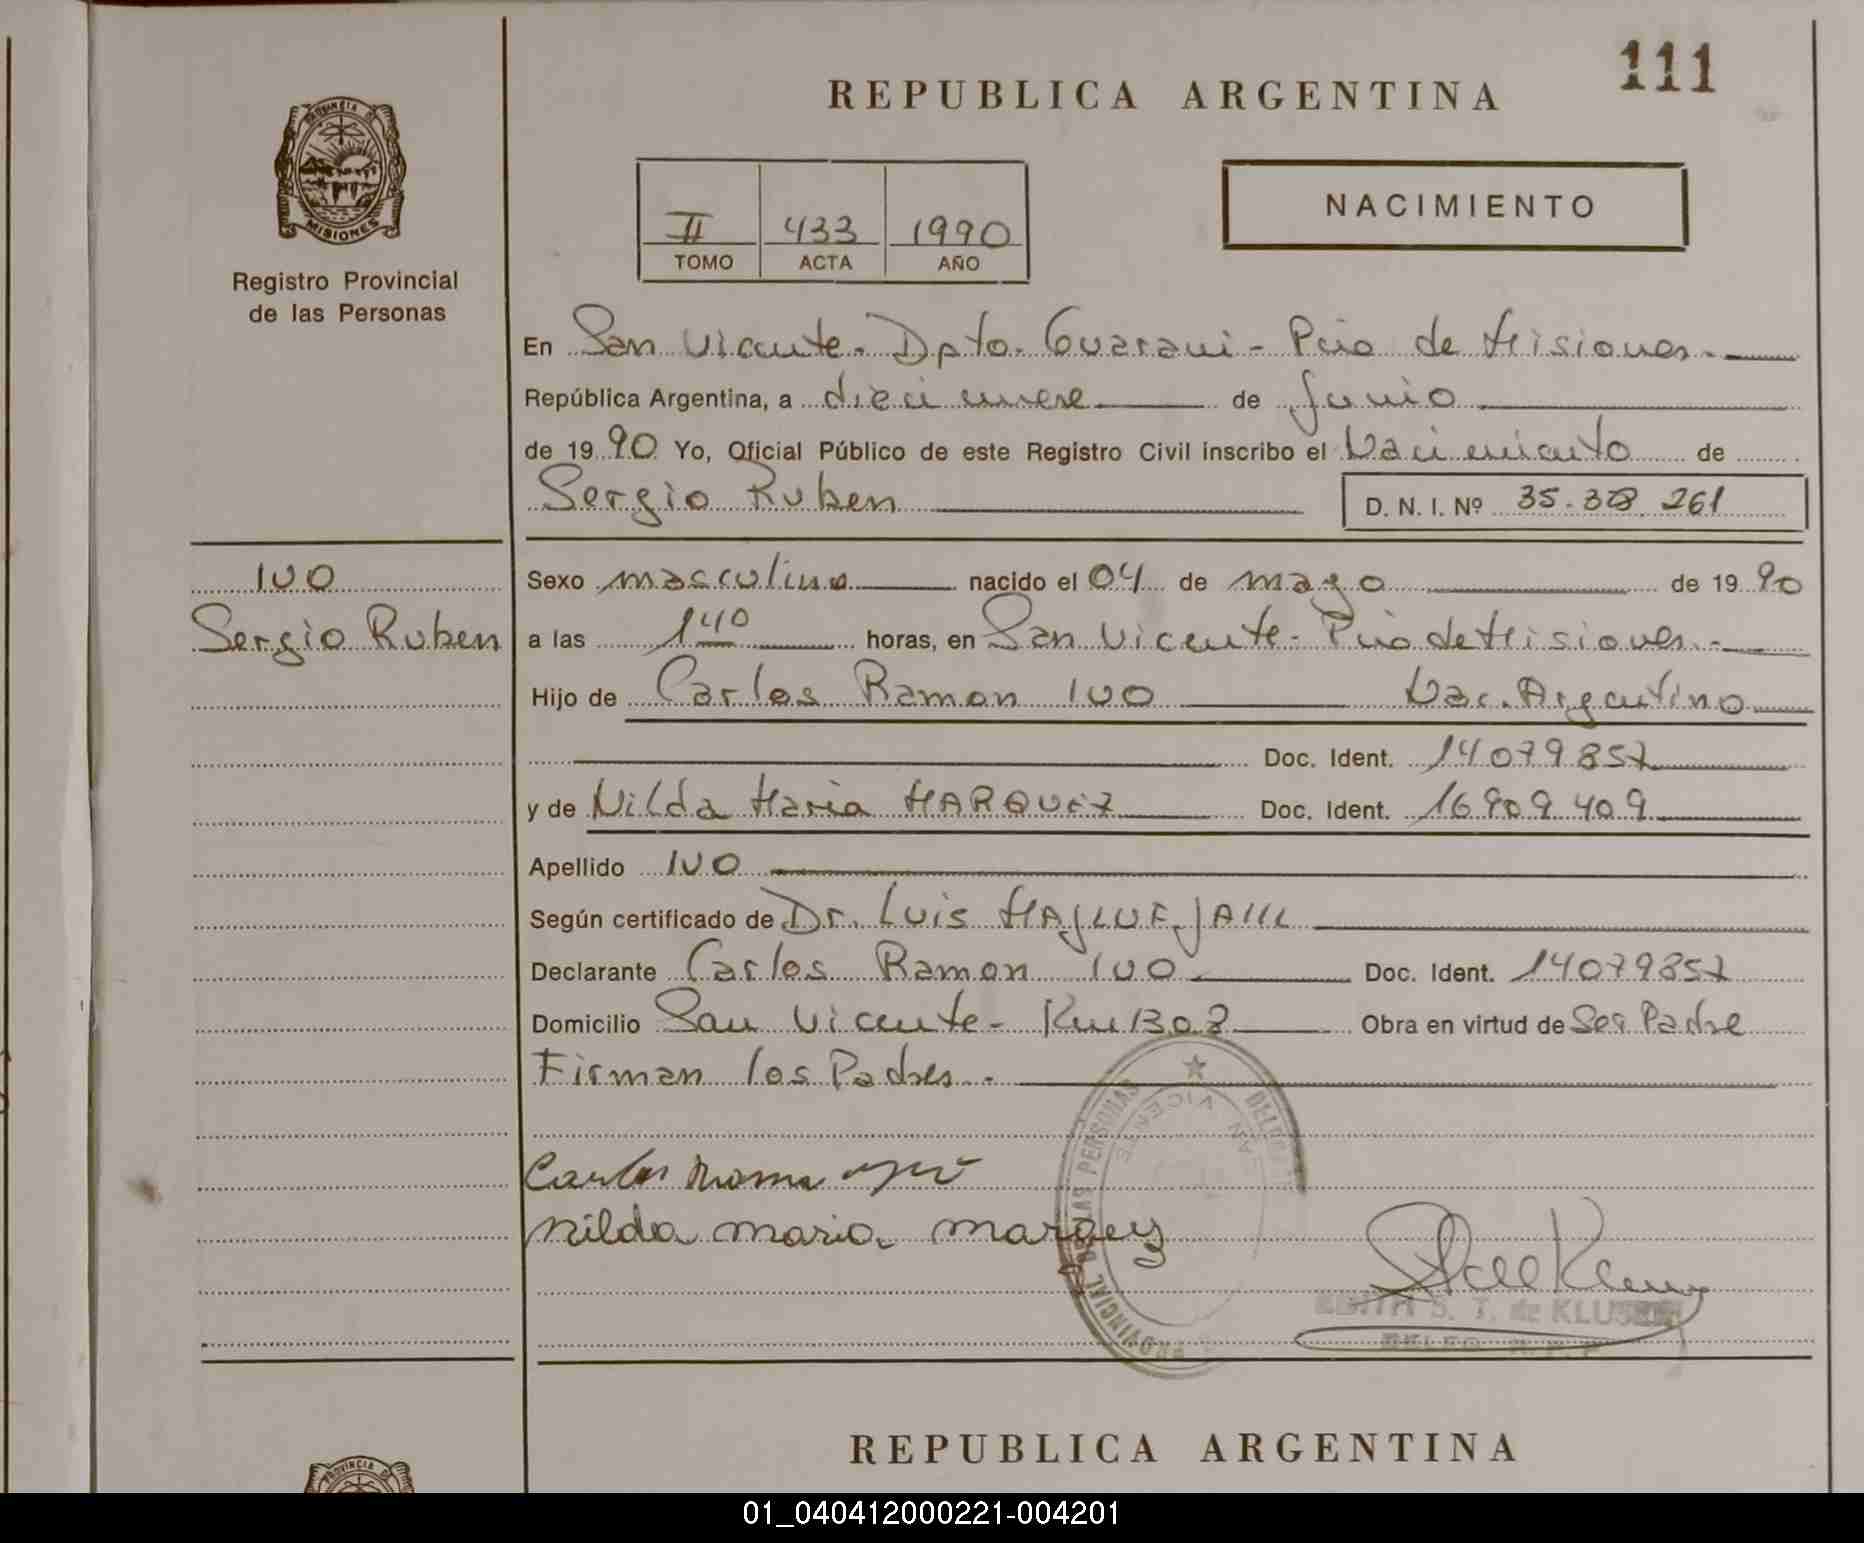 111
REPUBLICA ARGENTINA
PROVINCIA DE
MISIONES
Registro Provincial
de las Personas
NACIMIENTO
II 433 1990
TOMO ACTA AÑO
En San Vicente - Dpto. Guarani - Pcia de Misiones.
República Argentina, a diecinueve de Junio
de 1990 Yo, Oficial Público de este Registro Civil inscribo el Nacimiento de
Sergio Ruben D. N. I. Nº 35.328.261
IVO
Sergio Ruben
Sexo masculino nacido el 04 de mayo de 1990
a las 1 40 horas, en San Vicente - Pcia de Misiones.-
Hijo de Carlos Ramon IVO Nac. Argentino
Doc. Ident. 14079857
y de Nilda Maria MARQUEZ Doc. Ident. 16909409
Apellido IVO
Según certificado de Dr. Luis
Declarante Carlos Ramon IVO Doc. Ident. 14079857
Domicilio San Vicente - Km 1308 Obra en virtud de Ser Padre
Firman los Padres.-
Carlos
nilda maria marqez
PROVINCIAL DE LAS PERSONAS
SAN VICENTE
EDITH S. T. de KLUSEN
REPUBLICA ARGENTINA
PROVINCIA DE
01_040412000221-004201